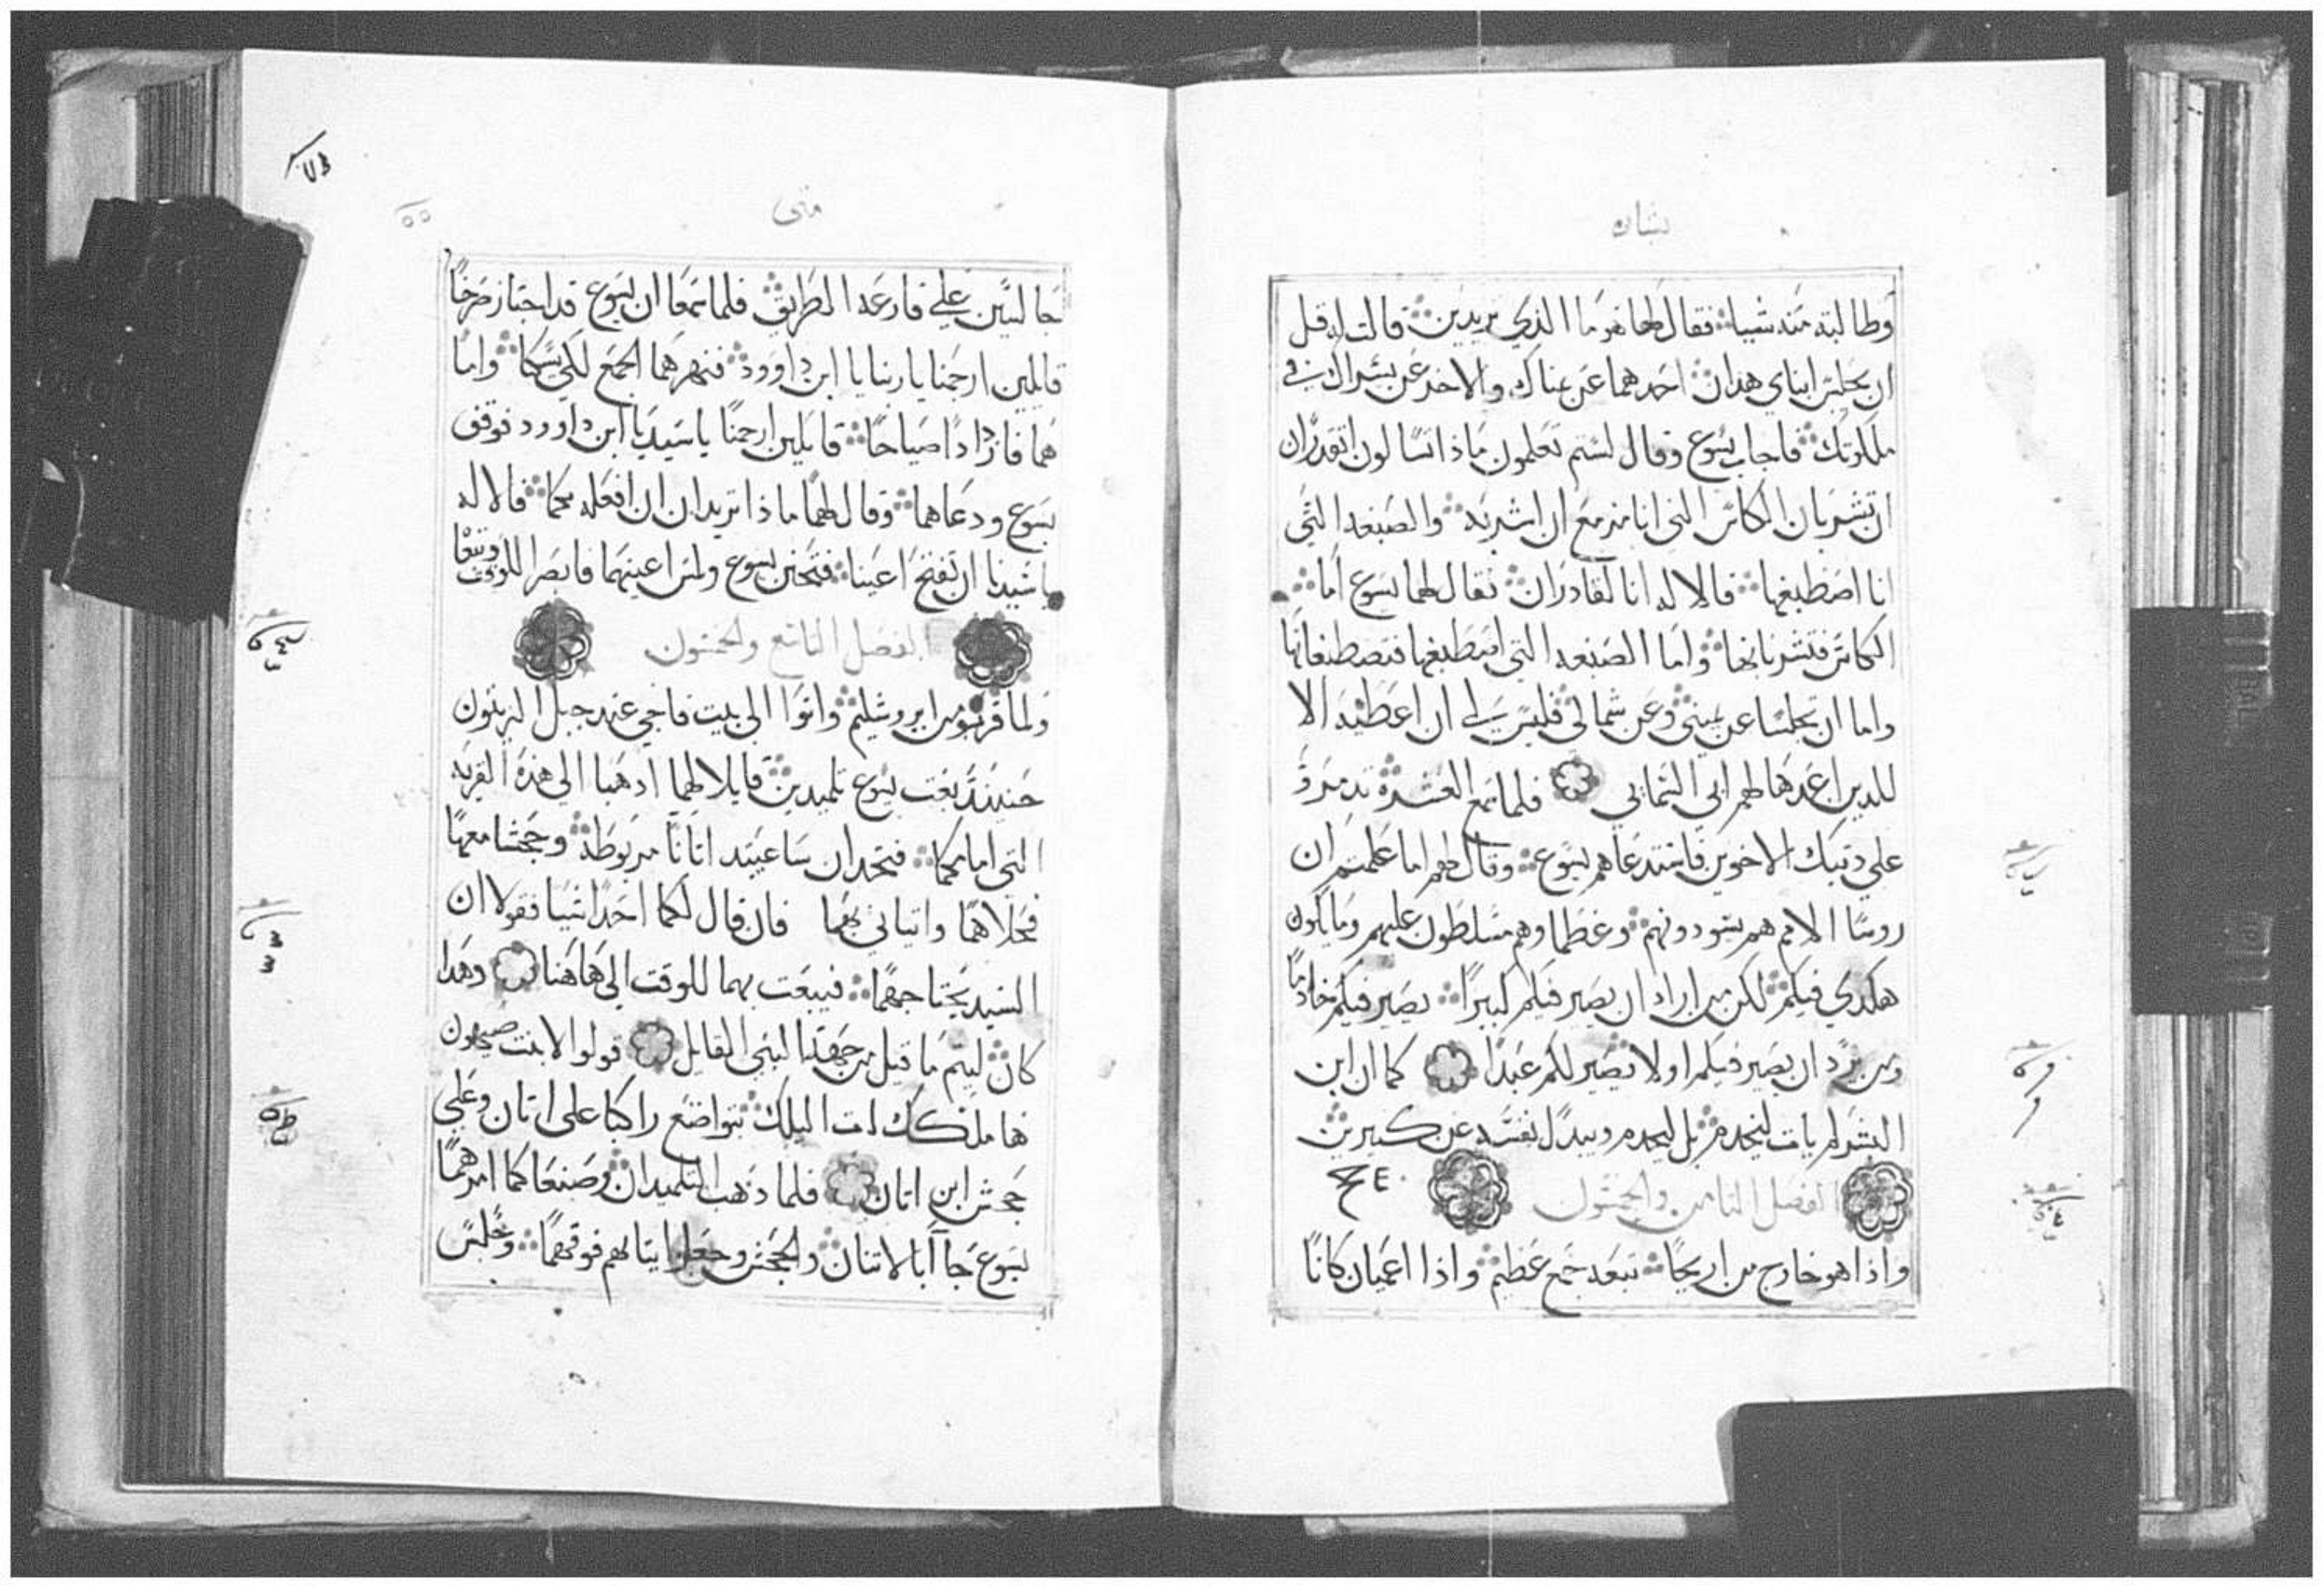 بشاره
وطالبته منه شييا فقال لها هو ما الذي تريدين قالت له قل
ان يجلس ابناي هدان احدهما عن يمناك والاخر عن يسراك في
ملكوتك فاجاب يسوع وقال لستم تعلمون ماذا تسالون اتقدران
ان تشربان الكاس التي انا مزمع ان اشربه والصبغه التي
انا اصطبغها قالا له انا لقادران فقال لهما يسوع اما
الكاس فتشربانها واما الصبغه التي اصطبغها فتصطبغانها
واما ان تجلسا عن يميني وعن شمالي فليس لي ان اعطيه الا
للدين اعدها لهم ابي السمايي فلما سمع العشره تدمروا
علي دينك الاخوين فاستدعاهم يسوع وقال لهم اما علمتم ان
روسا الامم هم يسودونهم وعظماوهم مسلطون عليهم وما يكون
هكدي فيكم لكن من اراد ان يصير فيكم كبيرا يصير فيكم خادما
ومن يرد ان يصير فيكم اولا يصير لكم عبدا كما ان ابن
البشر لم يات ليخدم بل ليخدم ويبدل نفسه عن كثيرين
الفصل الثامن والخمسون
واذا هو خارج من اريحا تبعه جمع عظيم واذا اعميان كانا
متى
٥٥
جالسين علي قارعه الطريق فلما سمعا ان يسوع قد اجتاز صرخا
قايلين ارحمنا يا ربنا يا ابن داوود فنهرهما الجمع لكي يسكتا واما
هما فازدادا صياحا قايلين ارحمنا يا سيدنا ابن داوود فوقف
يسوع ودعاهما وقال لهما ماذا تريدان ان افعله بكما قالا له
يا سيدنا ان تفتح اعيننا فتحنن يسوع ولمس اعينهما فابصرا للوقت وتبعاه
الفصل التاسع والخمسون
ولما قربوا من ايروشليم واتوا الي بيت فاجي عند جبل الزيتون
حينيذ بعت يسوع تلميدين قايلا لهما ادهبا الي هذه القريه
التي امامكما فتجدان ساعيتيد اتانا مربوطه وجحشا معها
فحلاهما واتياني بهما فان قال لكما احدا شيا فقولا ان
السيد يحتاجهما فيبعت بهما للوقت الي هاهنا وهدا
كان ليتم ما قيل من جهة النبي القايل قولوا لابنت صيهون
ها ملكك ات اليك بتواضع راكبا علي اتان وعلي
جحش ابن اتان فلما ذهب التلميدان وصنعا كما امرهما
يسوع جاآ بالاتان والجحش وجعلوا تيابهم فوقهما وجلس